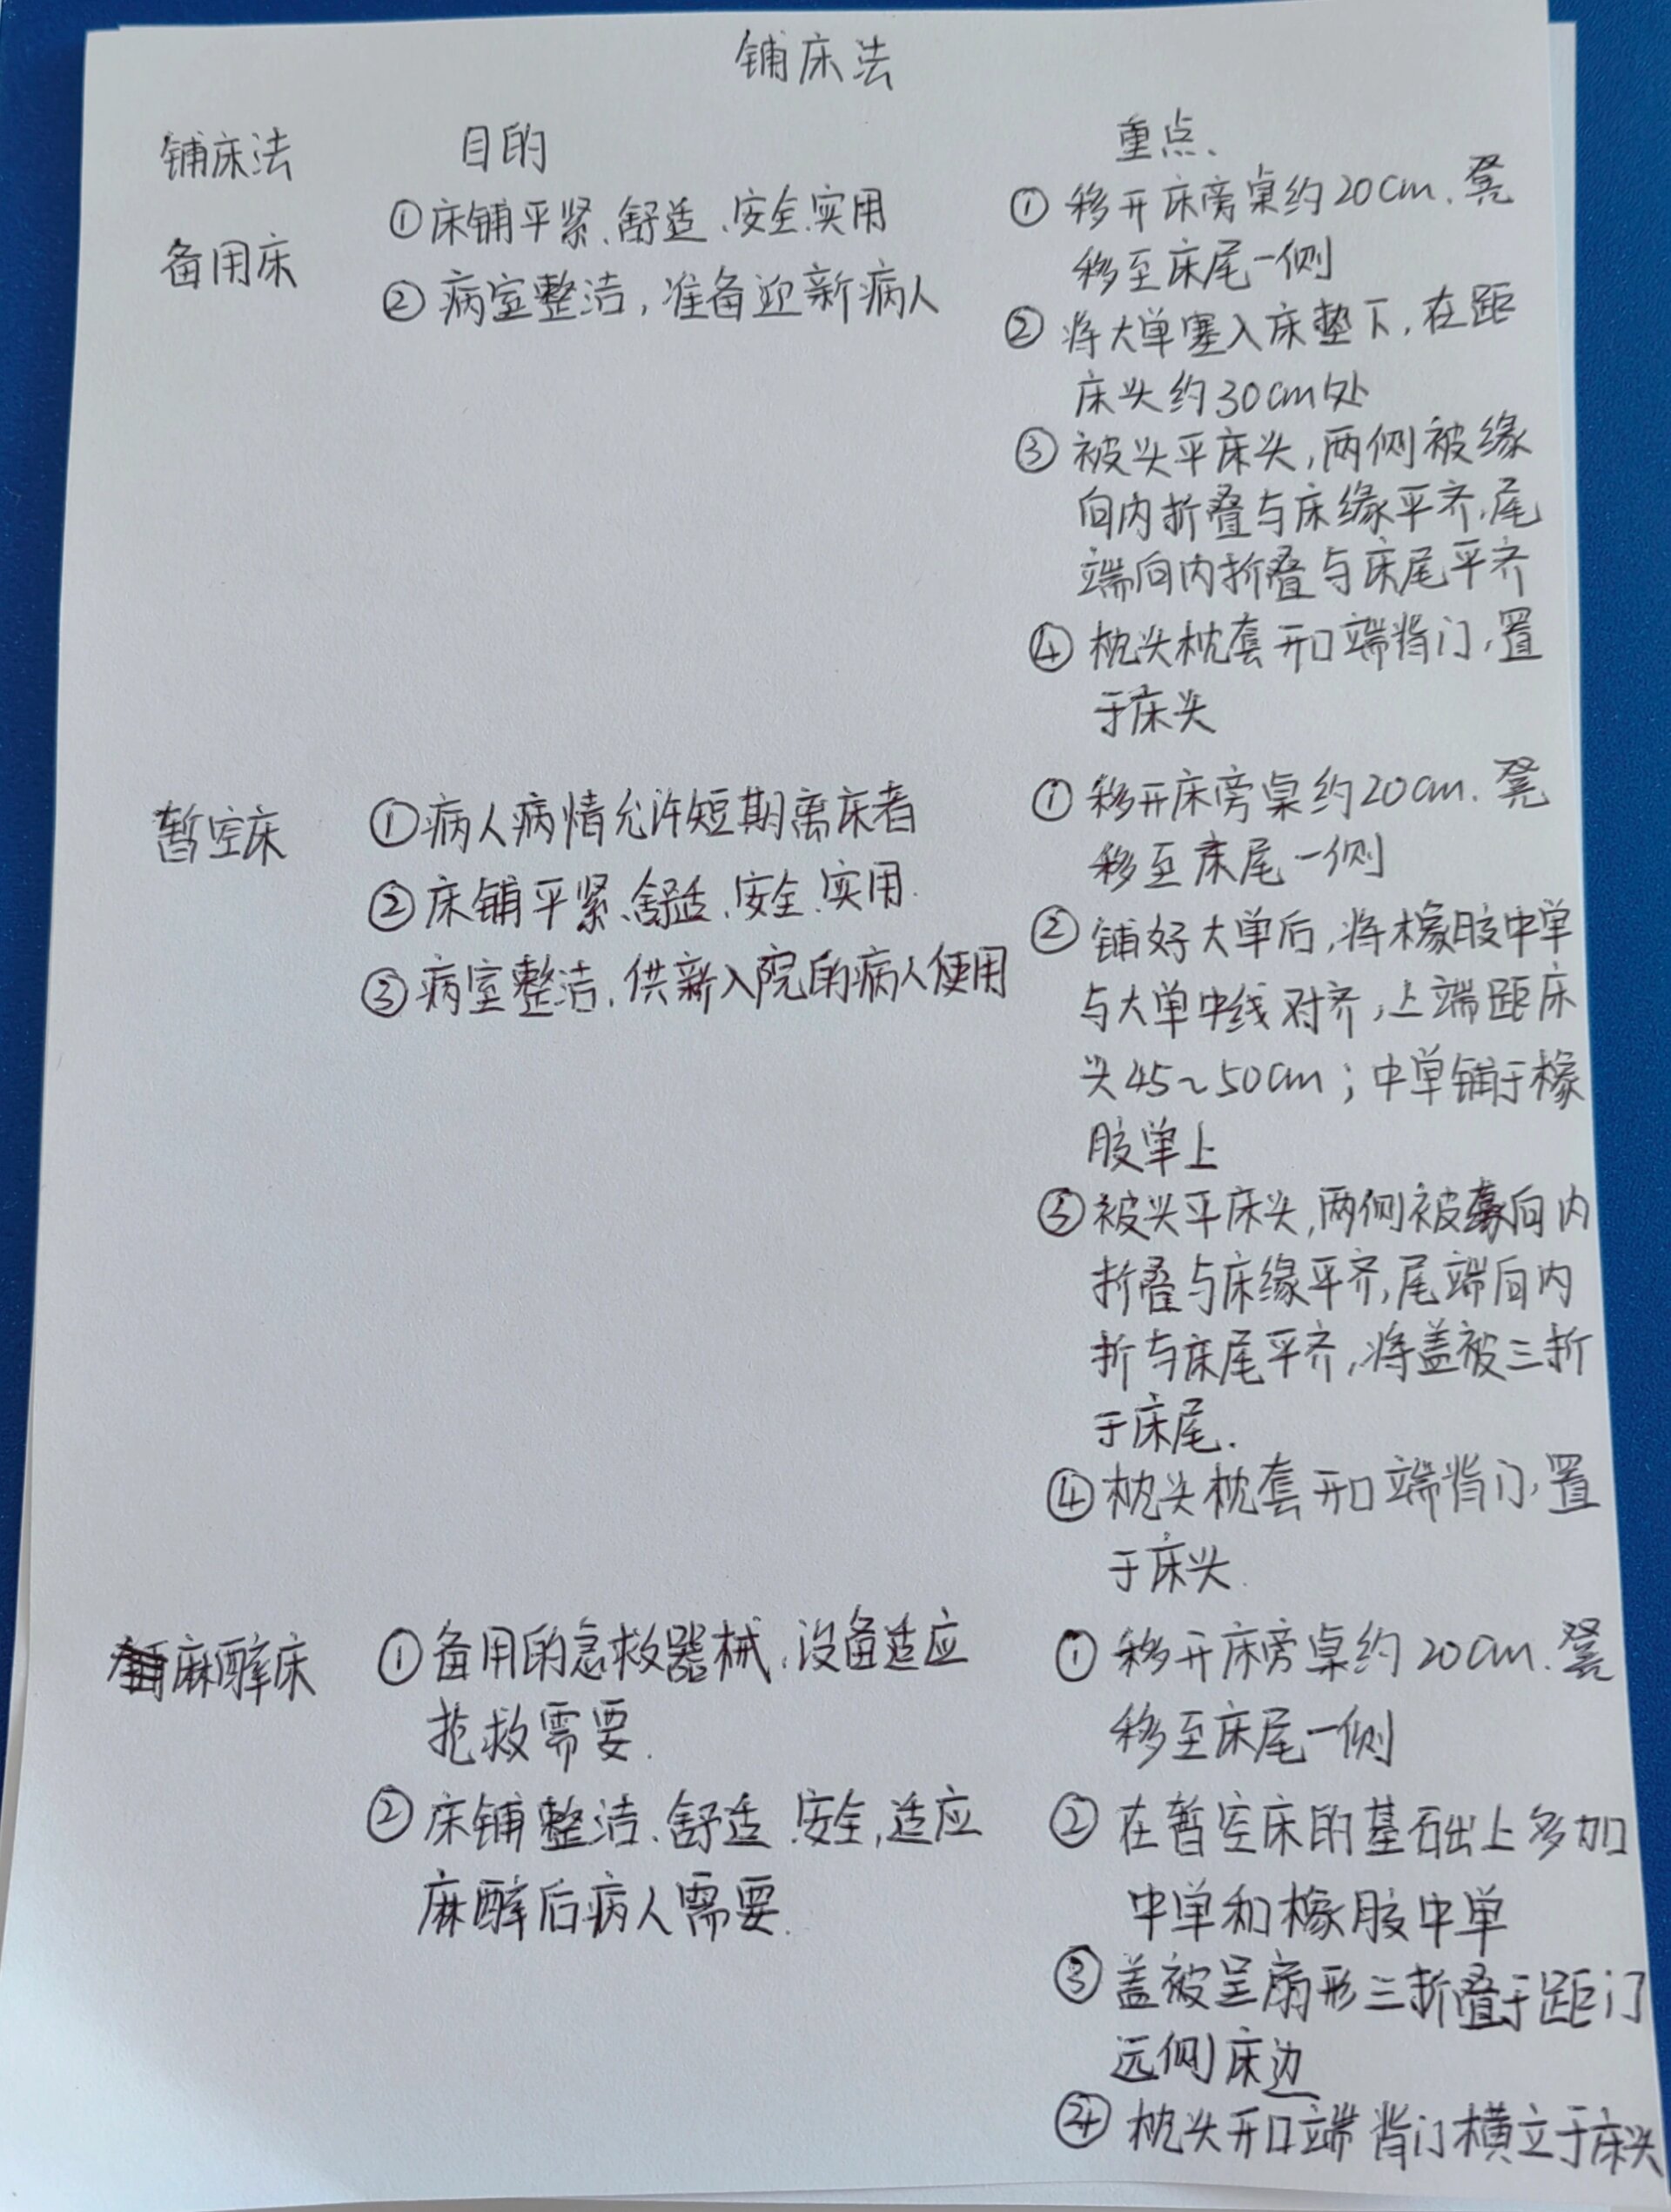 铺床法
铺床法 目的 重点、
备用床
①床铺平紧、舒适、安全、实用
②病室整洁，准备迎新病人
①移开床旁桌约20cm．凳
移至床尾一侧
②将大单塞入床垫下，在距
床头约30cm处
③被头平床头，两侧被缘
向内折叠与床缘平齐，尾
端向内折叠与床尾平齐
④枕头枕套开口端背门，置
于床头
暂空床
①病人病情允许短期离床者
②床铺平紧、舒适、安全、实用．
③病室整洁，供新入院的病人使用
①移开床旁桌约20cm．凳
移至床尾一侧
②铺好大单后，将橡胶中单
与大单中线对齐，上端距床
头45~50cm；中单铺于橡
胶单上
③被头平床头，两侧被缘向内
折叠与床缘平齐，尾端向内
折与床尾平齐，将盖被三折
于床尾．
④枕头枕套开口端背门，置
于床头．
麻醉床
①备用的急救器械、设备适应
抢救需要．
②床铺整洁、舒适、安全，适应
麻醉后病人需要．
①移开床旁桌约20cm．凳
移至床尾一侧
②在暂空床的基础上多加
中单和橡胶中单
③盖被呈扇形三折叠于距门
远侧床边
④枕头开口端背门横立于床头